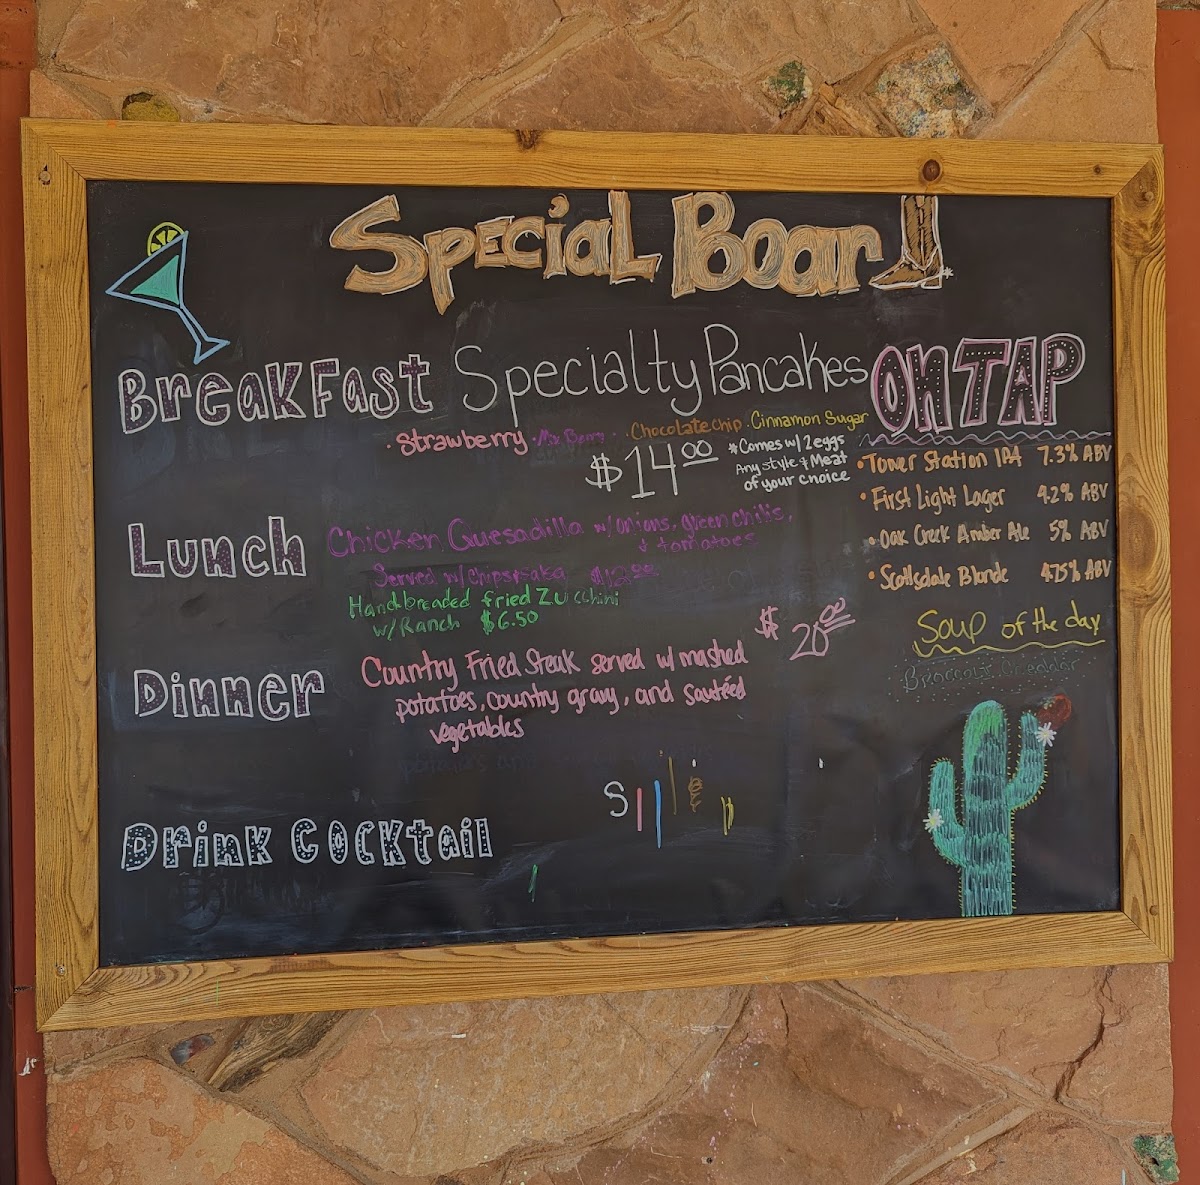 Special Boar
Breakfast Specialty Pancakes
• Strawberry • Mix Berry • Chocolate chip • Cinnamon Sugar
$14.00
*Comes w/ 2 eggs
Any style & Meat
of your choice
Lunch
Chicken Quesadilla w/ onions, green chilis,
& tomatoes
Served w/ chips & salsa $12.00
Hand-breaded fried Zucchini
w/ Ranch $6.50
Dinner
Country Fried Steak served w/ mashed
potatoes, country gravy, and sautéed
vegetables
$20.00
Drink Cocktail
ON TAP
• Tower Station IPA 7.3% ABV
• First Light Lager 4.2% ABV
• Oak Creek Amber Ale 5% ABV
• Scottsdale Blonde 4.75% ABV
Soup of the day
Broccoli Cheddar